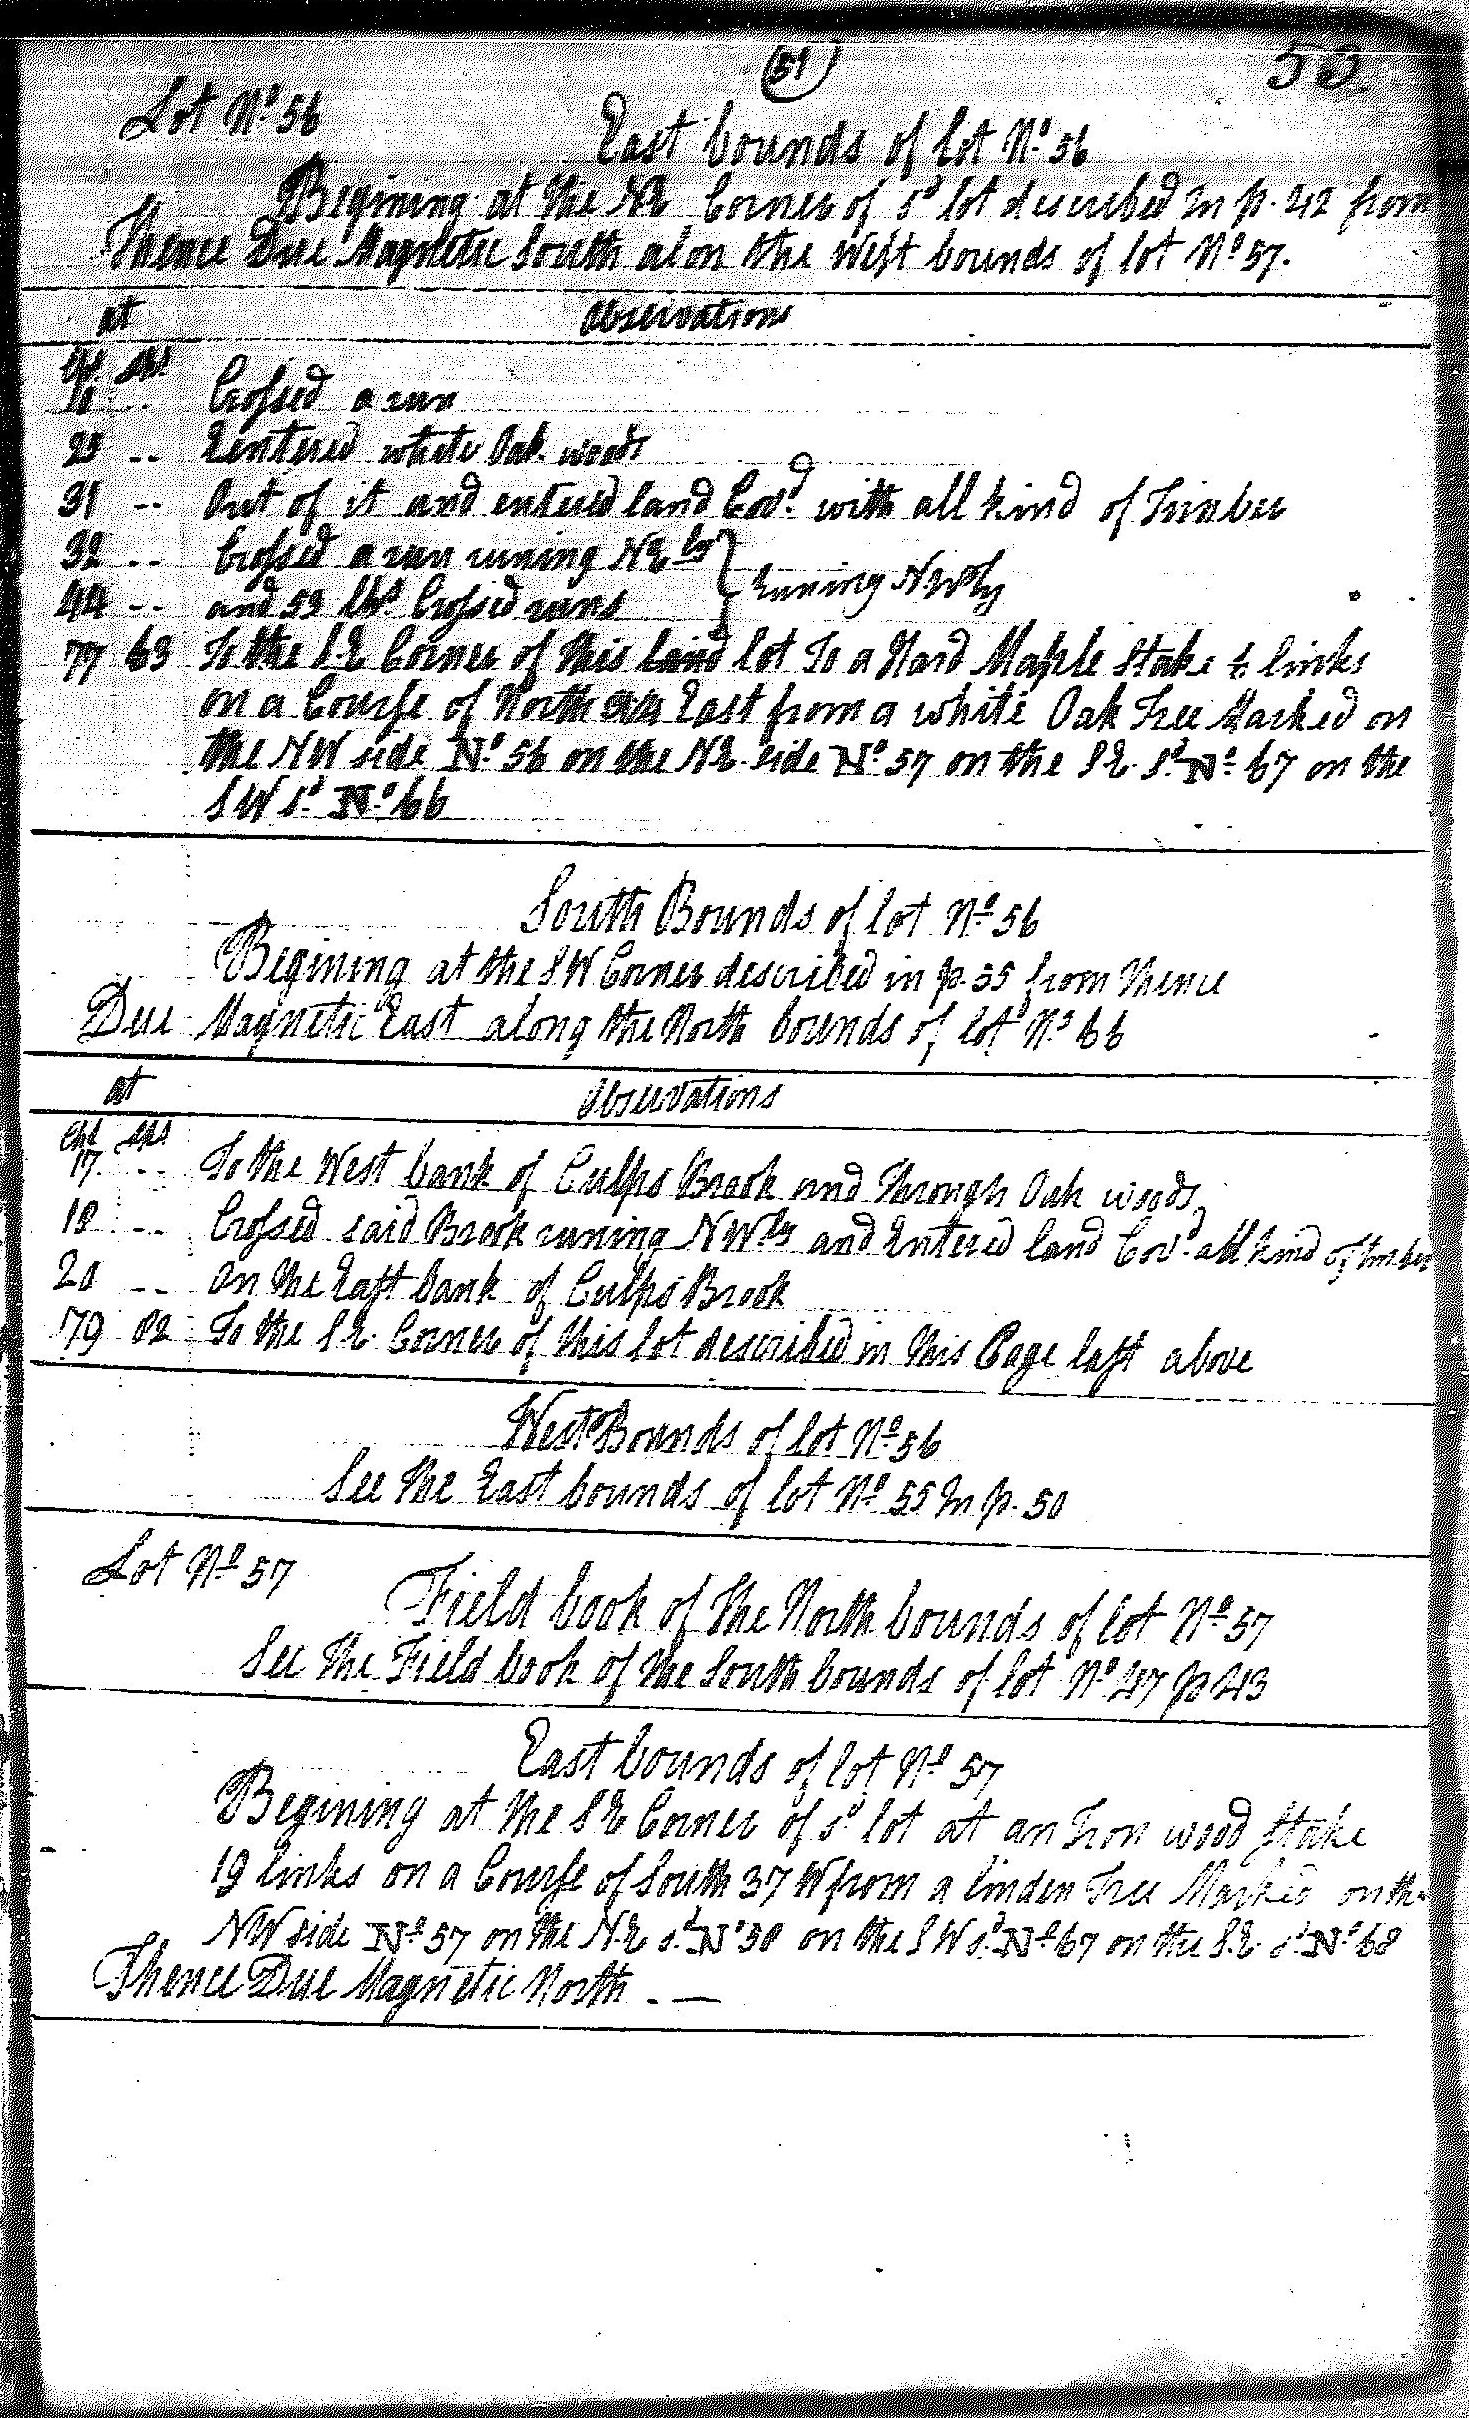 51
Lot No 56
East bounds of lot No 56
Begining at the NE Corner of sd lot described in p. 42 from
Thence Due Magnetic South alon the West bounds of lot No 57.
at Observations
Chs Lks
Crossed a run
25 -- Entered white Oak woods
31 -- Out of it and entered land Covd with all kind of Timber
32 -- Crossed a run runing NEly
44 -- and 53 Chs Crossed runs } runing NWly
77 63 To the SE Corner of this land lot To a Hard Maple Stake 6 links
on a Course of North East from a white Oak Tree Marked on
the NW side No 56 on the NE side No 57 on the SE sd No 67 on the
SW sd No 66
South Bounds of lot No 56
Begining at the SW Corner described in p. 55 from thence
Due Magnetic East along the North bounds of lot No 66
at Observations
Chs Lks
17 -- To the West bank of Culps Brook and Through Oak woods
18 -- Crossed said Brook runing NWly and Entered land Covd all kind of timber
20 -- On the East bank of Culps Brook
79 82 To the SE Corner of this lot described in this Page last above
West Bounds of lot No 56
See the East bounds of lot No 55 In p. 50
Lot No 57
Field book of the North bounds of lot No 57
See the Field book of the South bounds of lot No 47 p 43
East bounds of lot No 57
Begining at the SE Corner of sd lot at an Iron wood Stake
19 links on a Course of South 37 W from a linden Tree Marked on the
NW side No 57 on the N.E sd No 58 on the SW sd No 67 on the S.E. sd No 68
Thence Due Magnetic North - —